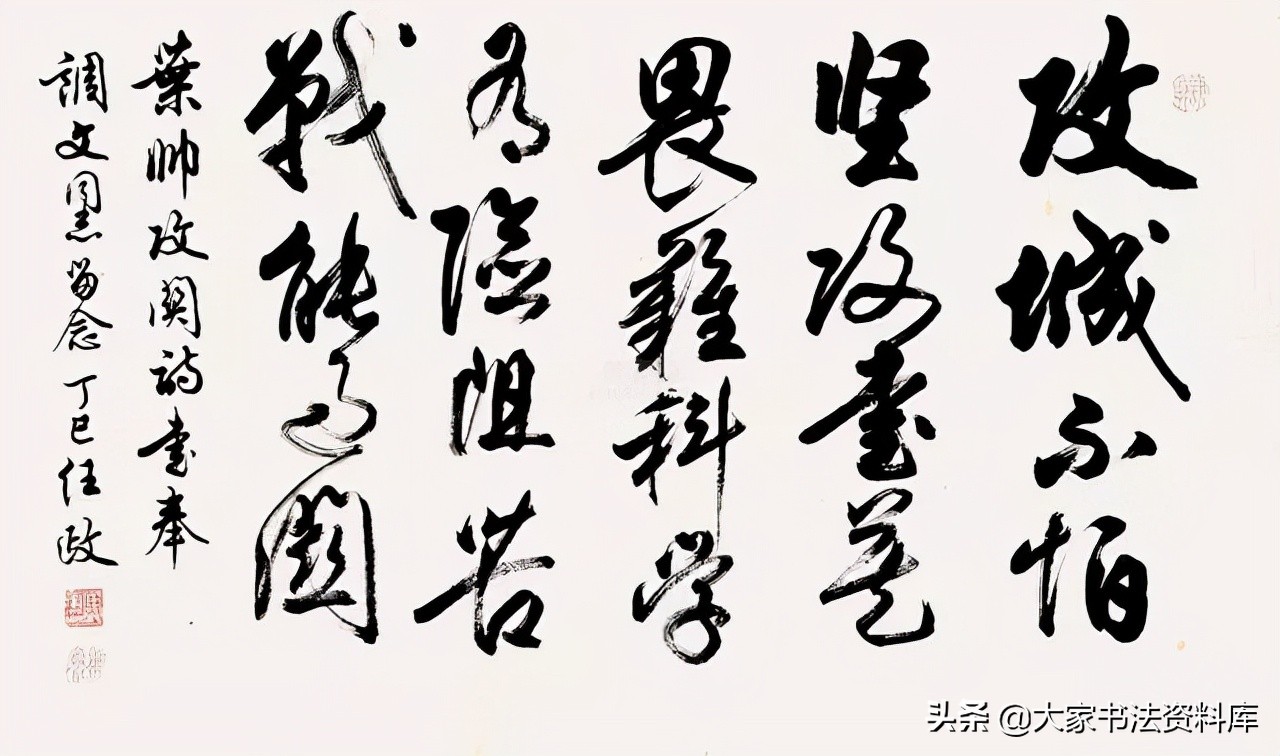 攻城不怕
坚攻书莫
畏难科学
有險阻苦
戰能過關
葉帅攻関诗书奉
調文同志留念 丁巳任政
头条 @大家书法资料库